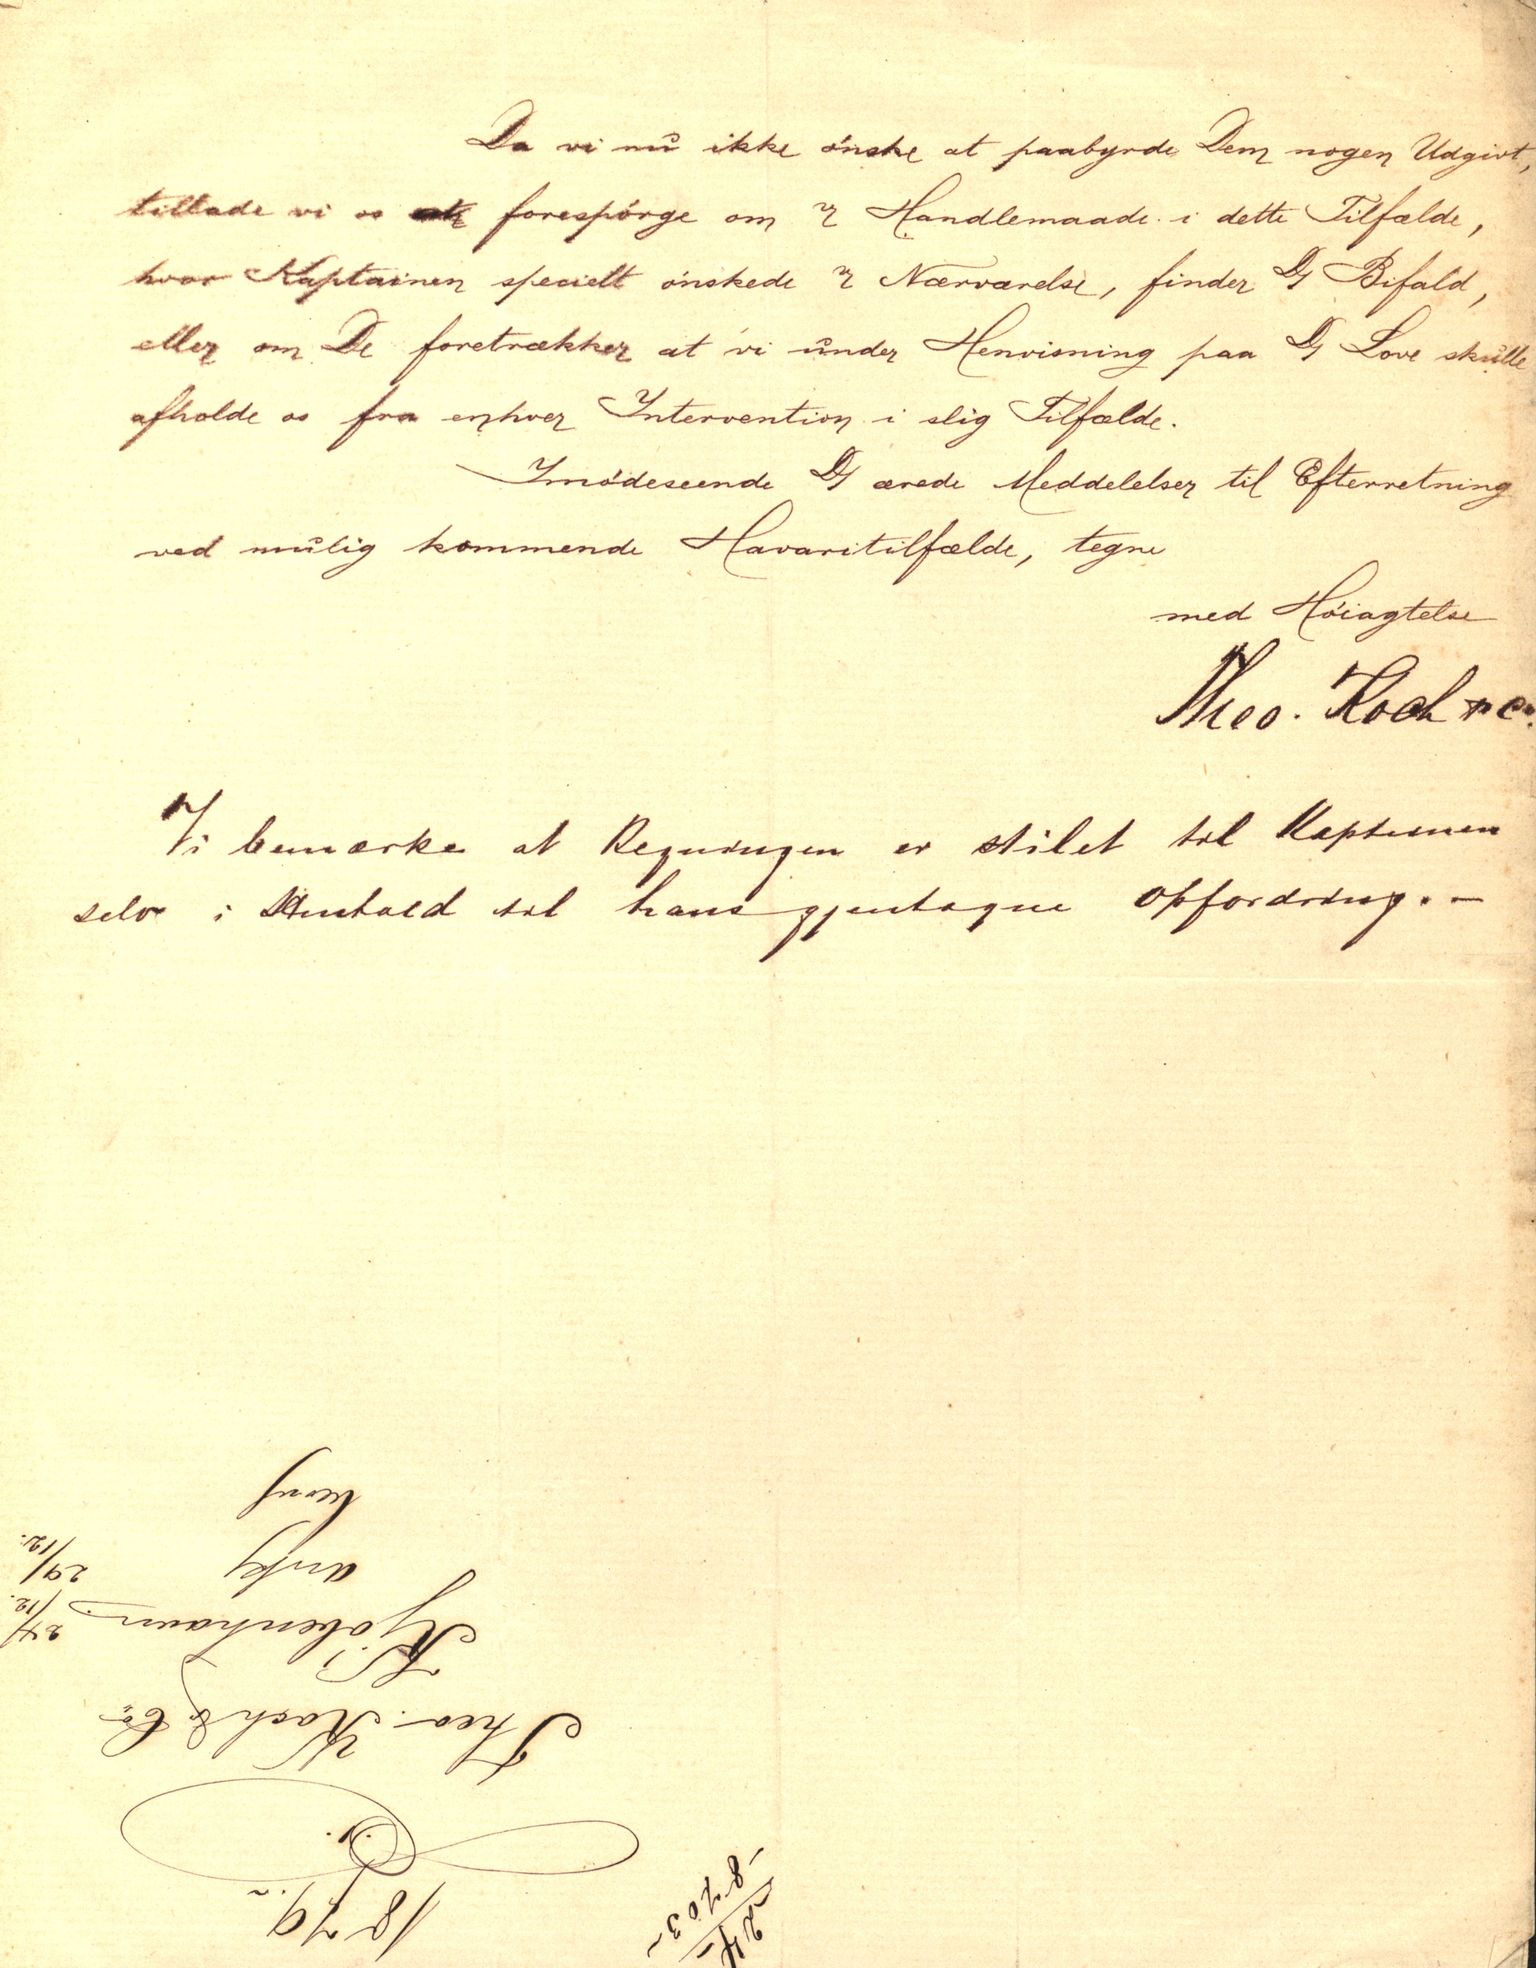 Da vi nu ikke ønske at paabyrde Dem nogen Udgivt,
tillade vi os forespørge om Handlemaade i dette Tilfælde,
hvor Kaptainen specielt ønskede Nærværelse, finder Ds Bifald,
eller om De foretrækker at vi under Henvisning paa Ds Love skulle
afholde os fra enhver Intervention i slig Tilfælde.
Imødeseende Ds ærede Meddelelser til Efterretning
ved mulig kommende Havaritilfælde, tegne
med Høiagtelse
Theo. Koch & Co.
Vi bemærke at Regningen er stilet til Kaptainen
selv i Henhold til hans gjentagne Opfordring. –
1879
Theo. Koch & Co
Kjøbenhavn.
24/12.
29/12.